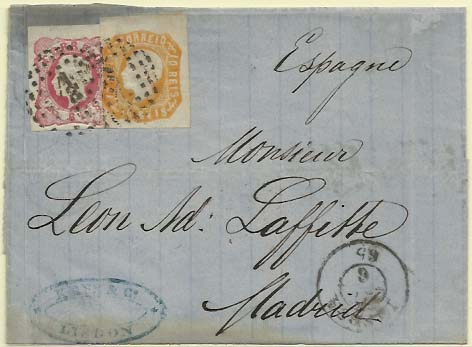 CORREIO 10 REIS
Espagne
Monsieur
Leon Ad: Laffitte
Madrid
& C.
LISBON